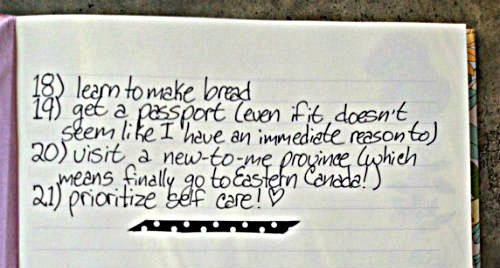 18) learn to make bread
19) get a passport (even if it doesn't
seem like I have an immediate reason to)
20) visit a new-to-me province (which
means finally go to Eastern Canada!)
21) prioritize self care! ♡